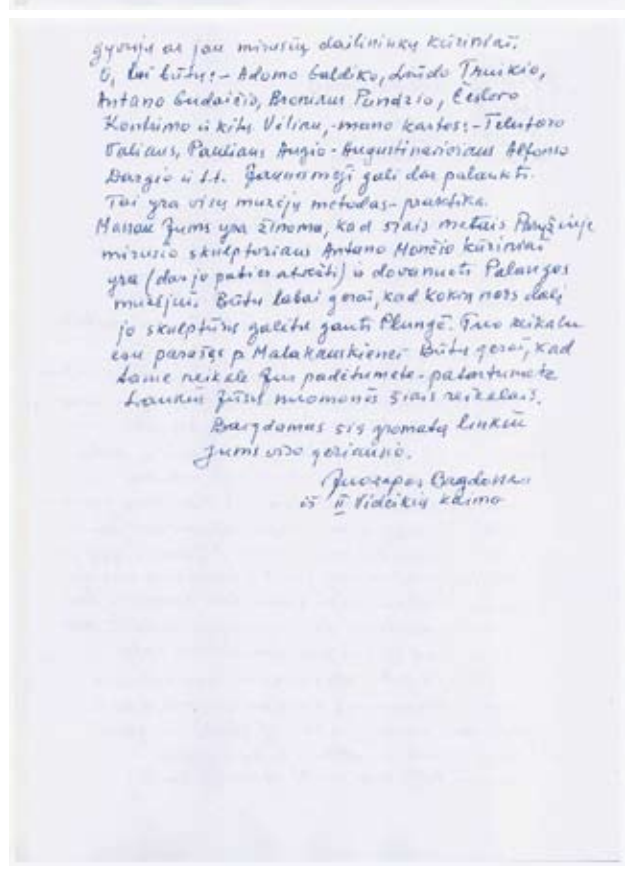 gyvųjų ar jau mirusių dailininkų kūriniai.
O, tai būtų: - Adomo Galdiko, Liūdo Truikio,
Antano Gudaičio, Broniaus Pundzio, Česlovo
Kontrimo ir kitų. Vėliau, - mano kartos: - Telesforo
Valiaus, Pauliaus Augio - Augustinavičiaus Alfonso
Dargio ir t.t. Jaunesnieji gali dar palaukti.
Tai yra visų muziejų metodas - praktika.
Manau Jums yra žinoma, kad šiais metais Paryžiuje
mirusio skulptoriaus Antano Mončio kūriniai
yra (dar jo paties atvežti) ir dovanoti Palangos
muziejui. Būtų labai gerai, kad kokią nors dalį
jo skulptūrų galėtų gauti Plungė. Tuo reikalu
esu parašęs p. Malakauskienei. Būtų gerai, kad
tame reikale Jūs padėtumėte - patartumėte
Lauksiu Jūsų nuomonės šiais reikalais.
Baigdamas šią gromatą linkiu
Jums viso geriausio.
Juozapas Bagdonas
iš II Videikių kaimo